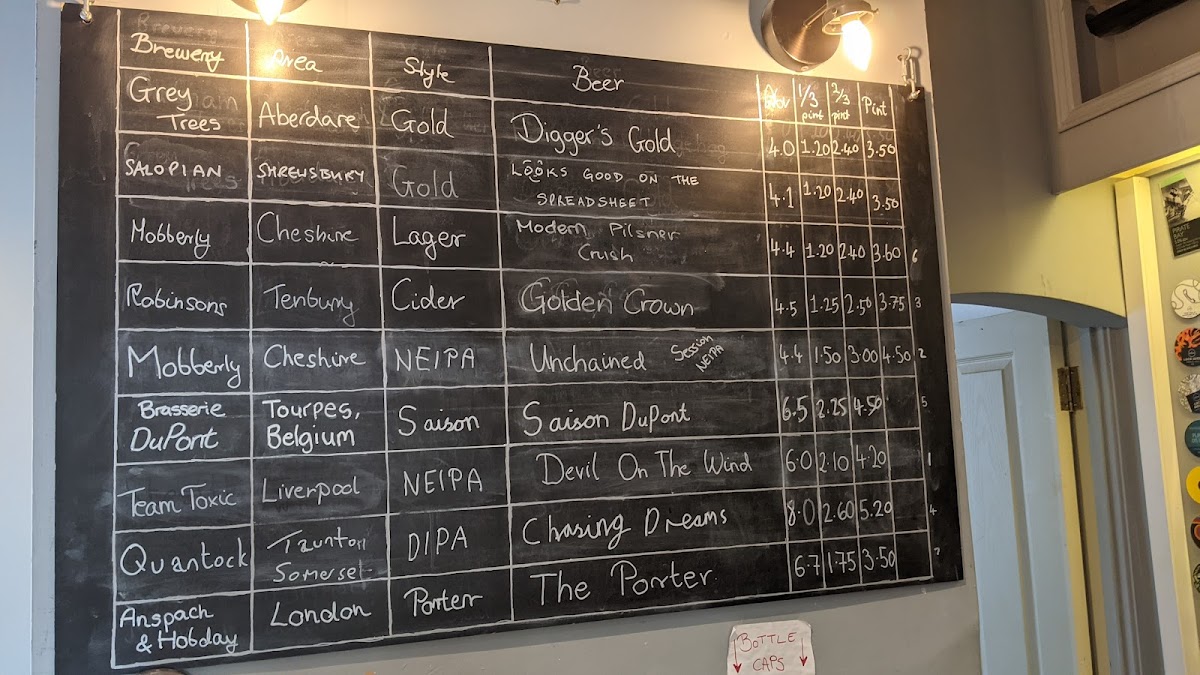 Brewery Area Style Beer Abv 1/3 pint 2/3 pint Pint
Grey Trees Aberdare Gold Digger's Gold 4.0 1.20 2.40 3.50
SALOPIAN SHREWSBURY Gold LOOKS GOOD ON THE SPREADSHEET 4.1 1.20 2.40 3.50
Mobberly Cheshire Lager Modern Pilsner Crush 4.4 1.20 2.40 3.60 6
Robinsons Tenbury Cider Golden Crown 4.5 1.25 2.50 3.75 3
Mobberly Cheshire NEIPA Unchained Session NEIPA 4.4 1.50 3.00 4.50 2
Brasserie DuPont Tourpes, Belgium Saison Saison DuPont 6.5 2.25 4.50 5
Team Toxic Liverpool NEIPA Devil On The Wind 6.0 2.10 4.20 1
Quantock Taunton Somerset DIPA Chasing Dreams 8.0 2.60 5.20 4
Anspach & Hobday London Porter The Porter. 6.7 1.75 3.50
BOTTLE
CAPS
PIRATE